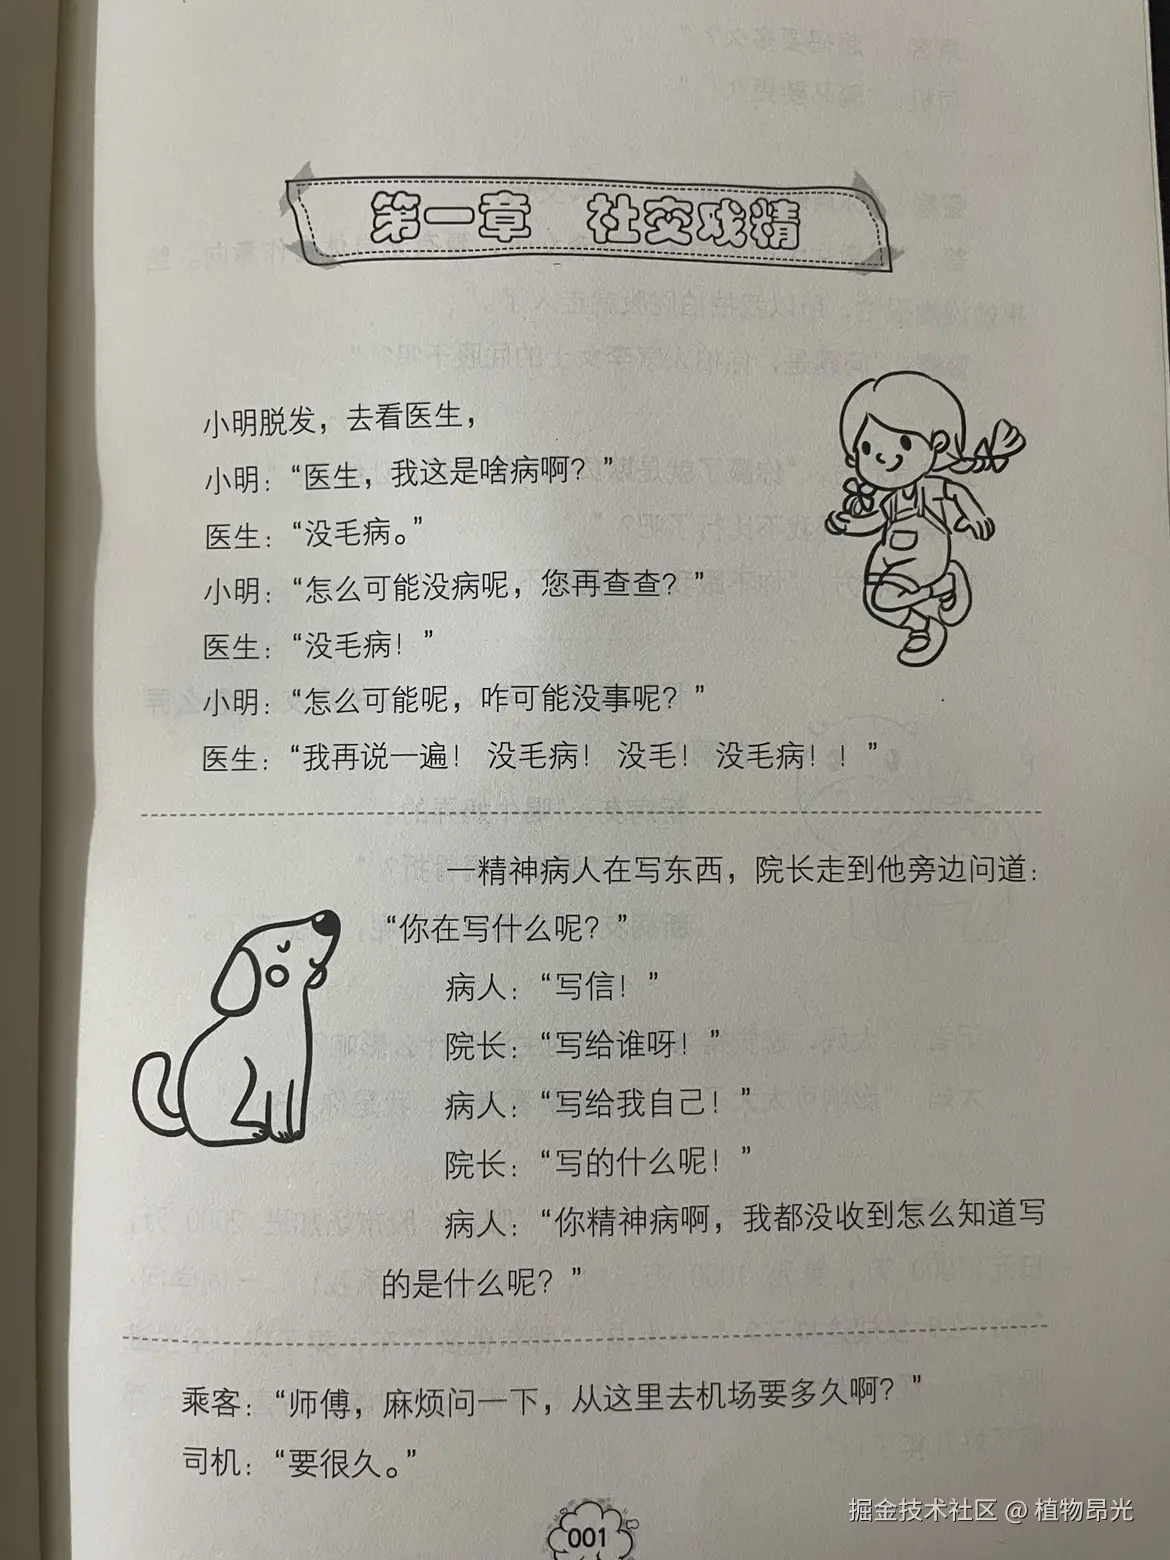 第一章 社交戏精
小明脱发，去看医生，
小明：“医生，我这是啥病啊？”
医生：“没毛病。”
小明：“怎么可能没病呢，您再查查？”
医生：“没毛病！”
小明：“怎么可能呢，咋可能没事呢？”
医生：“我再说一遍！没毛病！没毛！没毛病！！”
一精神病人在写东西，院长走到他旁边问道：
“你在写什么呢？”
病人：“写信！”
院长：“写给谁呀！”
病人：“写给我自己！”
院长：“写的什么呢！”
病人：“你精神病啊，我都没收到怎么知道写
的是什么呢？”
乘客：“师傅，麻烦问一下，从这里去机场要多久啊？”
司机：“要很久。”
001
掘金技术社区 @ 植物昂光